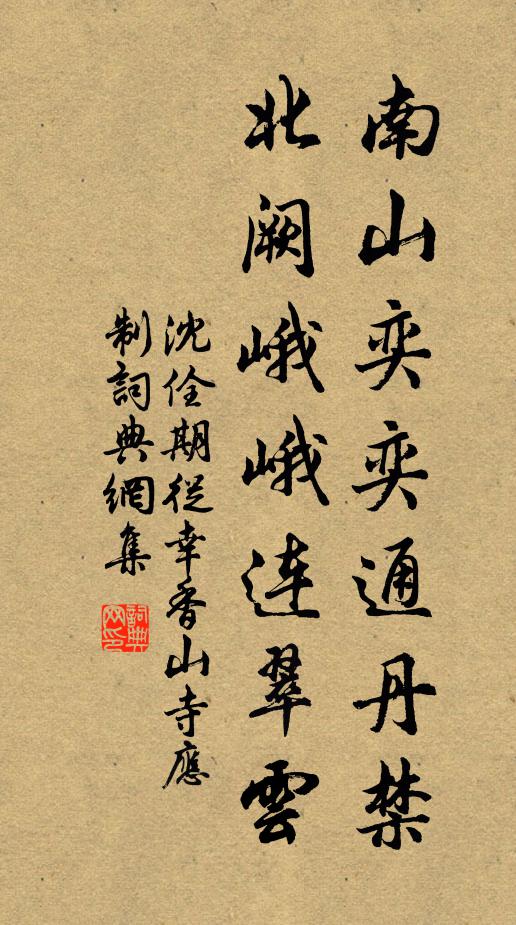 南山奕奕通丹禁
北闕峨峨連翠雲
沈佺期從幸香山寺應
制詞典網集
詞典網印